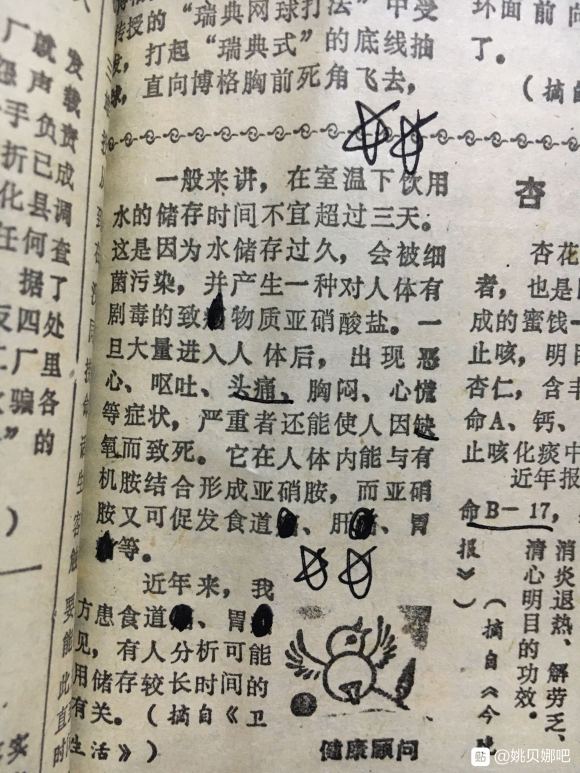 厂就发
声载
手负责
折已成
化县调
任何查
据了
反四处
厂里
骗各
”的
)
传授的“瑞典网球打法”中受
发,打起“瑞典式”的底线抽
球,直向博格胸前死角飞去,
环面前
了。
(摘
一般来讲,在室温下饮用
水的储存时间不宜超过三天。
这是因为水储存过久,会被细
菌污染,并产生一种对人体有
剧毒的致物质亚硝酸盐。一
旦大量进入人体后,出现恶
心、呕吐、头痛、胸闷、心慌
等症状,严重者还能使人因缺
氧而致死。它在人体内能与有
机胺结合形成亚硝胺,而亚硝
胺又可促发食道、肝、胃
等。
近年来,我
方患食道、胃
见,有人分析可能
用储存较长时间的
有关。(摘自《卫
生活》)
健康顾问
杏
杏花
者,也是
成的蜜饯一
止咳,明目
杏仁,含丰
命A、钙、
止咳化痰中
近年报
命B-17,
消炎退热、解劳乏、
清心明目的功效。
(摘自《今晚
报》)
贴 @姚贝娜吧